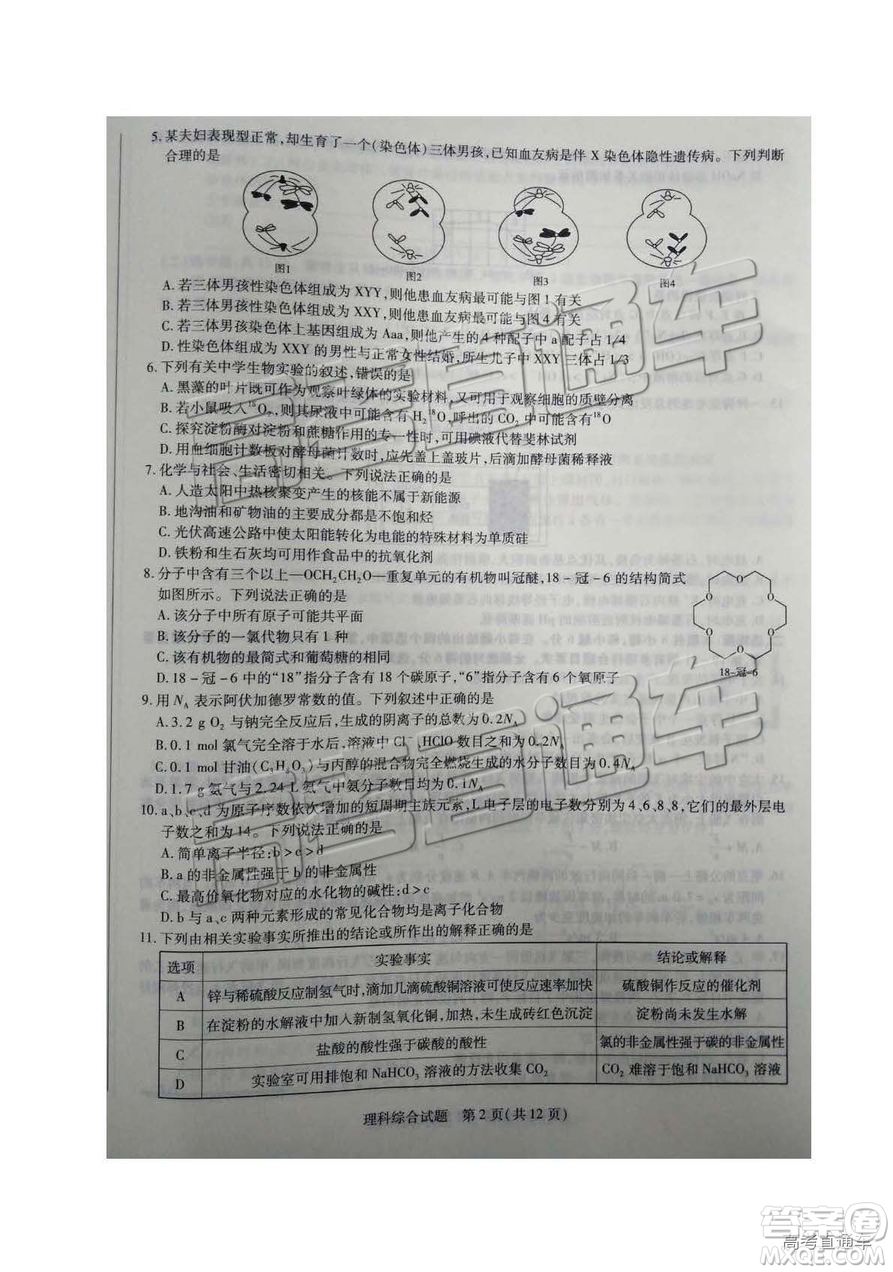 5. 某夫妇表现型正常,却生育了一个(染色体)三体男孩,已知血友病是伴 X 染色体隐性遗传病。下列判断
合理的是
图1 图2 图3 图4
A. 若三体男孩性染色体组成为 XYY,则他患血友病最可能与图 1 有关
B. 若三体男孩性染色体组成为 XXY,则他患血友病最可能与图 4 有关
C. 若三体男孩常染色体上基因组成为 Aaa,则他产生的 4 种配子中 a 配子占 1/4
D. 性染色体组成为 XXY 的男性与正常女性结婚,所生儿子中 XXY 三体占 1/3
6. 下列有关中学生物实验的叙述,错误的是
A. 黑藻的叶片既可作为观察叶绿体的实验材料,又可用于观察细胞的质壁分离
B. 若小鼠吸入¹⁸O₂,则其尿液中可能含有 H₂¹⁸O,呼出的 CO₂ 中可能含有¹⁸O
C. 探究淀粉酶对淀粉和蔗糖作用的专一性时,可用碘液代替斐林试剂
D. 用血细胞计数板对酵母菌计数时,应先盖上盖玻片,后滴加酵母菌稀释液
7. 化学与社会、生活密切相关。下列说法正确的是
A. 人造太阳中热核聚变产生的核能不属于新能源
B. 地沟油和矿物油的主要成分都是不饱和烃
C. 光伏高速公路中使太阳能转化为电能的特殊材料为单质硅
D. 铁粉和生石灰均可用作食品中的抗氧化剂
8. 分子中含有三个以上—OCH₂CH₂O—重复单元的有机物叫冠醚,18-冠-6 的结构简式
如图所示。下列说法正确的是
A. 该分子中所有原子可能共平面
B. 该分子的一氯代物只有 1 种
C. 该有机物的最简式和葡萄糖的相同
D. 18-冠-6 中的“18”指分子含有 18 个碳原子,“6”指分子含有 6 个氧原子
18-冠-6
9. 用 N_A 表示阿伏加德罗常数的值。下列叙述中正确的是
A. 3.2 g O₂ 与钠完全反应后,生成的阴离子的总数为 0.2N_A
B. 0.1 mol 氯气完全溶于水后,溶液中 Cl⁻、HClO 数目之和为 0.2N_A
C. 0.1 mol 甘油(C₃H₈O₃)与丙醇的混合物完全燃烧生成的水分子数目为 0.4N_A
D. 1.7 g 氨气与 2.24 L 氨气中氨分子数目均为 0.1N_A
10. a、b、c、d 为原子序数依次增加的短周期主族元素,L 电子层的电子数分别为 4、6、8、8,它们的最外层电
子数之和为 14。下列说法正确的是
A. 简单离子半径:b>c>d
B. a 的非金属性强于 b 的非金属性
C. 最高价氧化物对应的水化物的碱性:d>c
D. b 与 a、c 两种元素形成的常见化合物均是离子化合物
11. 下列由相关实验事实所推出的结论或所作出的解释正确的是
选项 实验事实 结论或解释
A 锌与稀硫酸反应制氢气时,滴加几滴硫酸铜溶液可使反应速率加快 硫酸铜作反应的催化剂
B 在淀粉的水解液中加入新制氢氧化铜,加热,未生成砖红色沉淀 淀粉尚未发生水解
C 盐酸的酸性强于碳酸的酸性 氯的非金属性强于碳的非金属性
D 实验室可用排饱和 NaHCO₃ 溶液的方法收集 CO₂ CO₂ 难溶于饱和 NaHCO₃ 溶液
理科综合试题 第 2 页(共 12 页)
高考直通车
高考直通车
答案圈
高考直通车
MXQE.COM